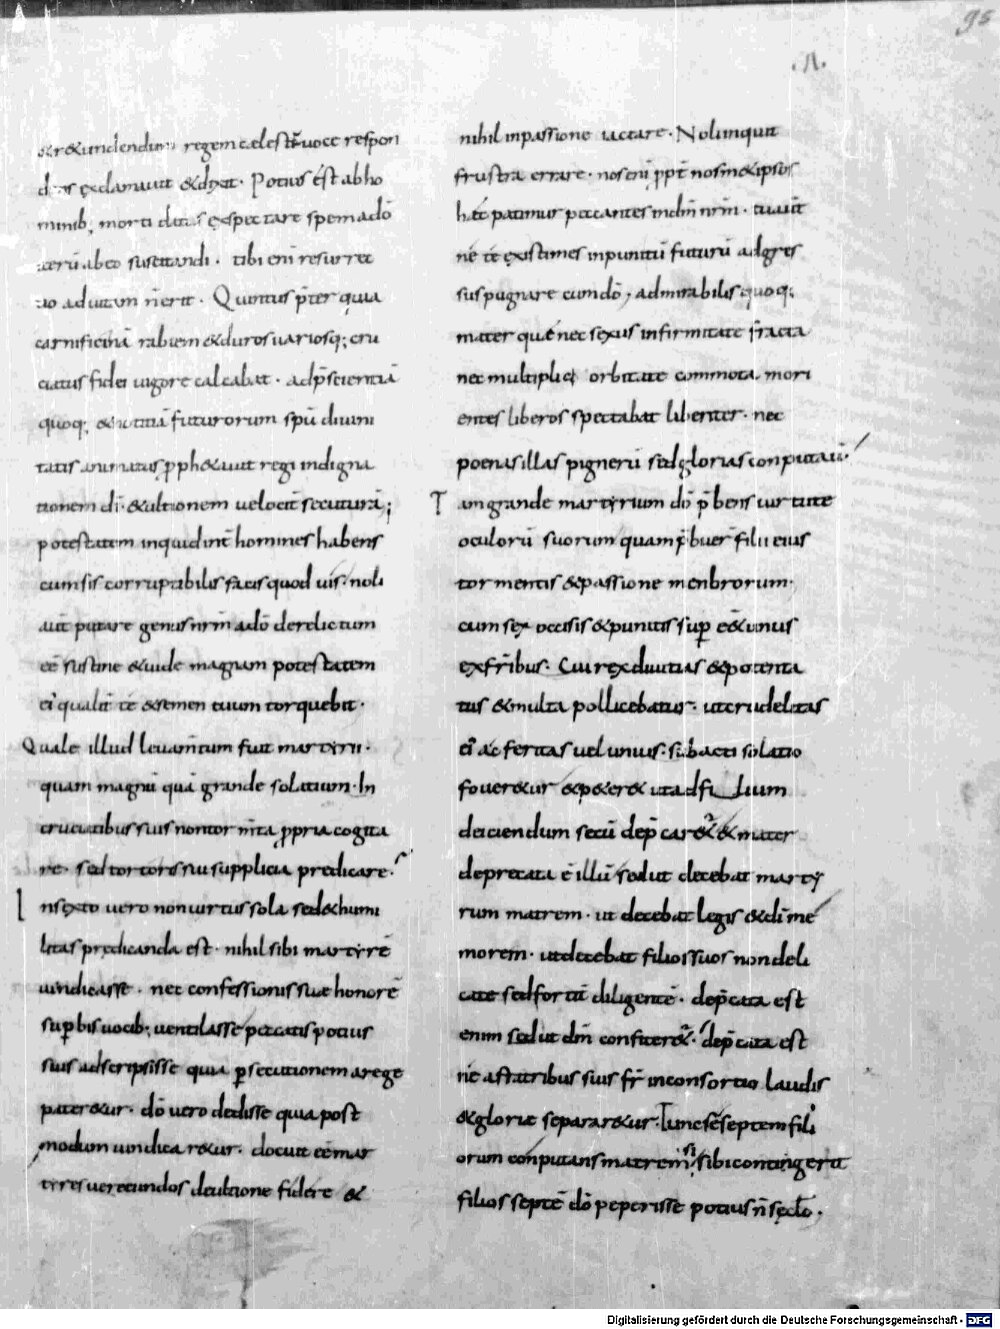 95
.Λ.
&r&undendum regem celesti uoce respon
dens exclamauit &dixit. Potius est abho
minib; morti datos exspectare spem adō
iterū abeo suscitandi. tibi enī resurrec
tio aduitam nerit. Quintus p̄ter quia
carnificinā rabiem &duros uariosq; cru
ciatus fidei uigore calcabat. adp̄scientiā
quoq; &notitiā futurorum spū diuini
tatis animatus pph&auit regi indigna
tionem dī. &ultionem uelocit̄ secuturā;
potestatem inquid int̄ homines habens
cumsis corruptibilis facis quod uis. noli
aut̄ putare genus nr̄m adō derelictum
eē sustine &uide magnam potestatem
ei' qualit̄ té &semen tuum torquebit.
Quale illud leuam̄tum fuit martyrii.
quam magnū quā grande solatium. In
cruciatibus suis non tor m̄ta ppria cogita
re. sed tortoris sui supplicia predicare.
Insexto uero nonuirtus sola sed&humi
litas predicanda est. nihil sibi martyrē
uindicasse. nec confessionis suæ honorē
supbis uocib; uentilasse peccatis potius
suis adscripsisse quia psecutionem arege
pater&ur. dō uero dedisse quia post
modum uindicar&ur. docuit eē mar
tyres uerecundos deultione fidere &
nihil inpassione iactare. Noli inquit
frustra errare. nos eni ppt̄ nosm&ipsos
hæc patimur peccantes indm̄ nr̄m. tu aut̄
né te existimes inpunitū futurū adgres
sus pugnare cumdō; admirabilis quoq;
mater quę nec sexus infirmitate fracta
nec multiplici orbitate commota mori
entes liberos spectabat libenter. nec
poenas illas pignerū sed glorias conputauit.
Tam grande martyrium dō p̄bens uirtute
oculorū suorum quam p̄buer̄ filii eius
tormentis &passione menbrorum.
cum sex occisis &punitis sup ēet unus
exfr̄ibus. Cui rex diuitias &potenta
tus &multa pollicebatur. ut crudelitas
ei' ac feritas uel unius. subacti solatio
fouer&ur &p&er& uta dfilium
deiciendum secū dep̄car&̄ & mater
deprecata ē illū sedut decebat marty
rum matrem. ut decebat legis &dī me
morem. utdecebat filios suos non deli
cate sedfort̄ diligentē. dep̄cata est
enim sedut dm̄ confiter&̄. dep̄cata est
né afratribus suis fr̄ inconsortio laudis
&gloriæ separar&ur. Tunc sé septem fili
orum conputans matrem si sibi contingerit
filios septē dō peperisse potius n̄ sc̄lo.
Digitalisierung gefördert durch die Deutsche Forschungsgemeinschaft - DFG